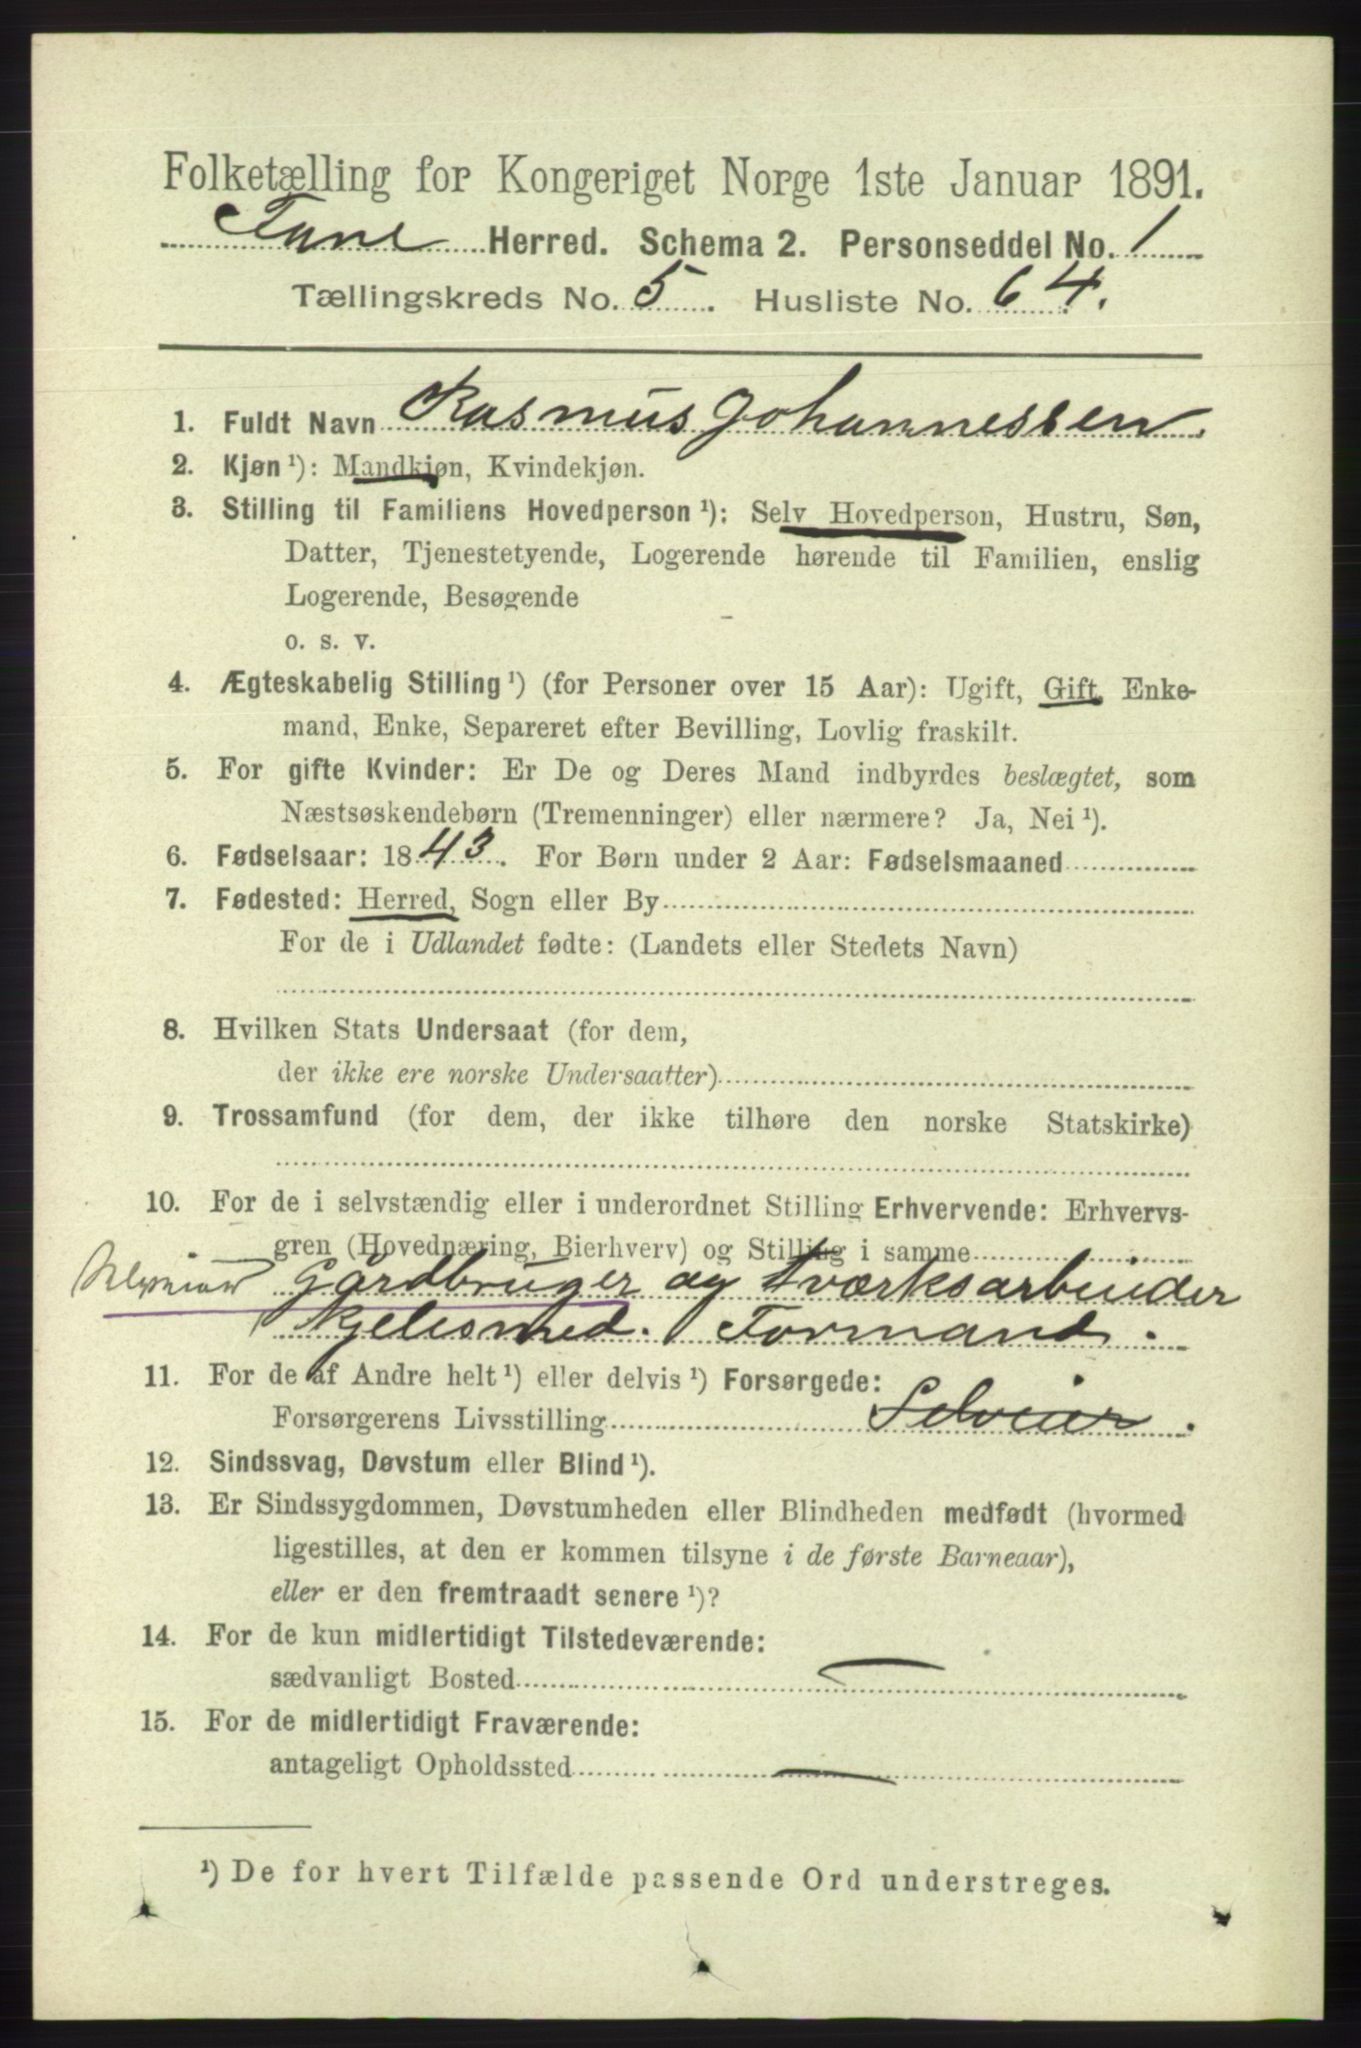 Folketælling for Kongeriget Norge 1ste Januar 1891.
Fane Herred. Schema 2. Personseddel No. 1
Tællingskreds No. 5. Husliste No. 64.
1. Fuldt Navn Rasmus Johannessen
2. Kjøn ¹): Mandkjøn, Kvindekjøn.
3. Stilling til Familiens Hovedperson ¹): Selv Hovedperson, Hustru, Søn,
Datter, Tjenestetyende, Logerende hørende til Familien, enslig
Logerende, Besøgende
o. s. v.
4. Ægteskabelig Stilling ¹) (for Personer over 15 Aar): Ugift, Gift, Enke-
mand, Enke, Separeret efter Bevilling, Lovlig fraskilt.
5. For gifte Kvinder: Er De og Deres Mand indbyrdes beslægtet, som
Næstsøskendebørn (Tremenninger) eller nærmere? Ja, Nei ¹).
6. Fødselsaar: 1843. For Børn under 2 Aar: Fødselsmaaned
7. Fødested: Herred, Sogn eller By
For de i Udlandet fødte: (Landets eller Stedets Navn)
8. Hvilken Stats Undersaat (for dem,
der ikke ere norske Undersaatter)
9. Trossamfund (for dem, der ikke tilhøre den norske Statskirke)
10. For de i selvstændig eller i underordnet Stilling Erhvervende: Erhvervs-
gren (Hovednæring, Bierhverv) og Stilling i samme
Gårdbruger og
Formand.
11. For de af Andre helt ¹) eller delvis ¹) Forsørgede:
Forsørgerens Livsstilling Selveier.
12. Sindssvag, Døvstum eller Blind ¹).
13. Er Sindssygdommen, Døvstumheden eller Blindheden medfødt (hvormed
ligestilles, at den er kommen tilsyne i de første Barneaar),
eller er den fremtraadt senere ¹)?
14. For de kun midlertidigt Tilstedeværende:
sædvanligt Bosted
15. For de midlertidigt Fraværende:
antageligt Opholdssted
¹) De for hvert Tilfælde passende Ord understreges.